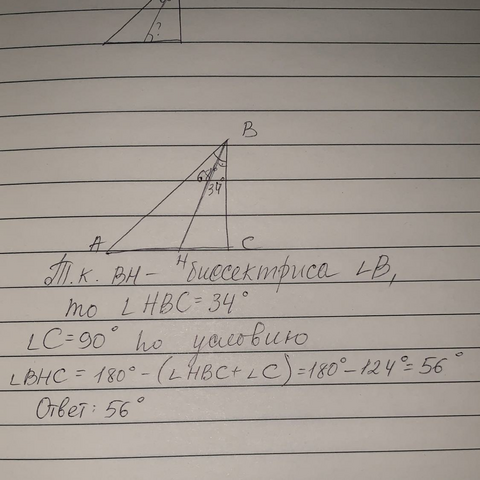 ?
B
68°
34°
A
H
C
Т.к. BH - биосектриса ∠B,
то ∠HBC = 34°
∠C = 90° по условию
∠BHC = 180° - (∠HBC + ∠C) = 180° - 124° = 56°
Ответ: 56°